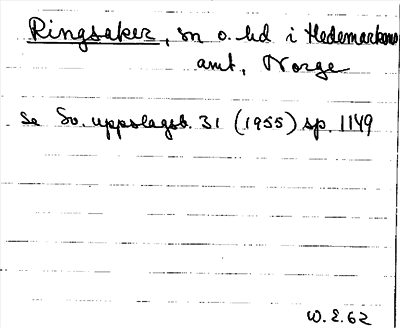 Ringsaker, sn o. hd i Hedemarkens
amt, Norge
Se Sv. uppslagsb. 31 (1955) sp. 1149
W.E.62